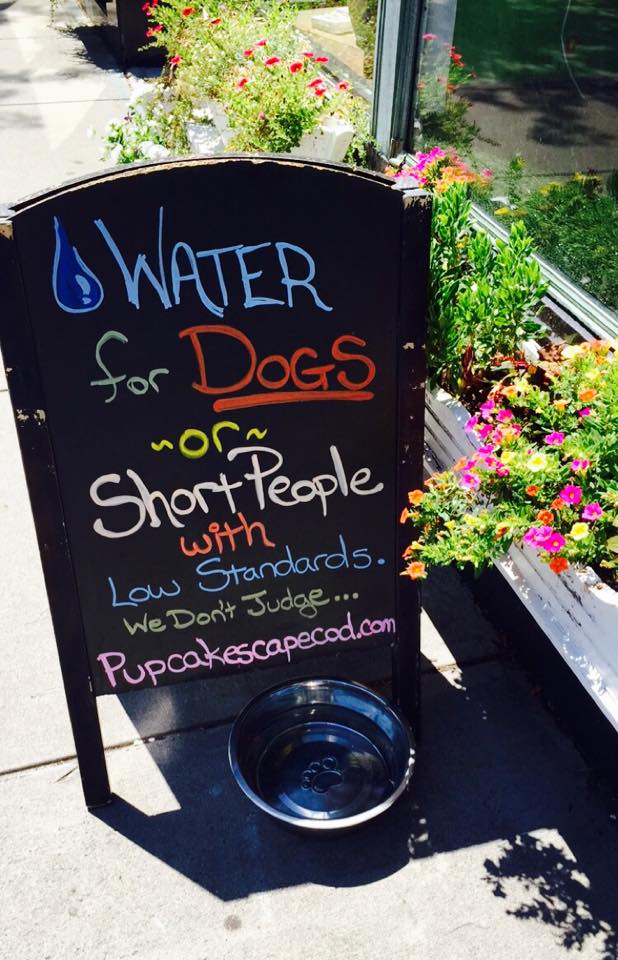 WATER
for DOGS
~or~
Short People
with
Low Standards.
We Don't Judge...
Pupcakescapecod.com